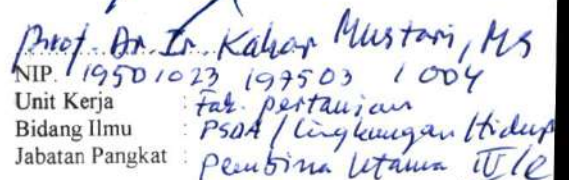 Prof. Dr. Ir. Kahar Mustari, MS
NIP. 19501023 197503 1 004
Unit Kerja : Fak. pertanian
Bidang Ilmu : PSDA / Lingkungan Hidup
Jabatan Pangkat : Pembina Utama IV/e